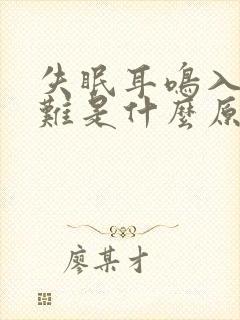 失眠耳鳴入
難是什麼原
廖某才